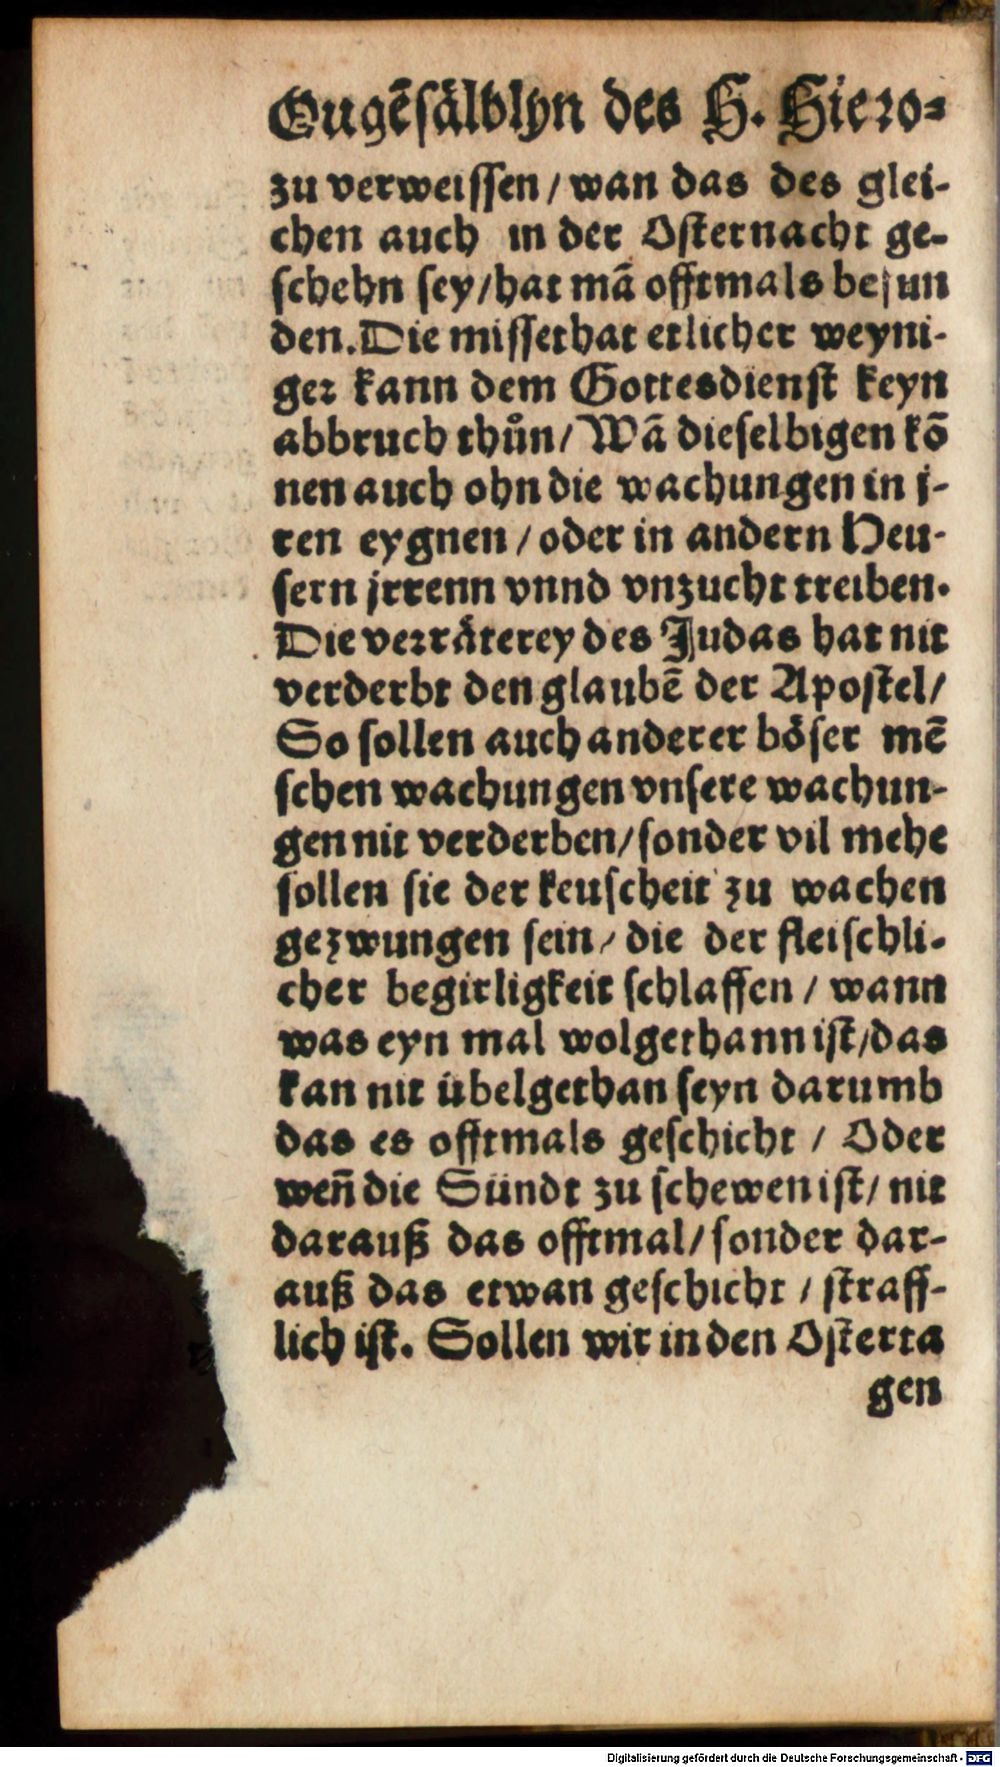 Eugēsälblyn des H. Hiero-
zu verweissen / wan das des glei-
chen auch in der Osternacht ge-
schehn sey / hat mā offtmals befun
den. Die missethat etlicher weyni-
ger kann dem Gottesdienst keyn
abbruch thůn / Wā dieselbigen kō
nen auch ohn die wachungen in j-
ren eygnen / oder in andern Heu-
sern jrrenn vnnd vnzucht treiben.
Die verräterey des Judas hat nit
verderbt den glaubē der Apostel /
So sollen auch anderer böser mē
schen wachungen vnsere wachun-
gen nit verderben / sonder vil mehe
sollen sie der keuscheit zu wachen
gezwungen sein / die der fleischli-
cher begirligkeit schlaffen / wann
was eyn mal wolgethann ist / das
kan nit übelgethan seyn darumb
das es offtmals geschicht / Oder
weñ die Sündt zu schewen ist / nit
darauß das offtmal / sonder dar-
auß das etwan geschicht / straff-
lich ist. Sollen wir in den Osterta
gen
Digitalisierung gefördert durch die Deutsche Forschungsgemeinschaft - DFG